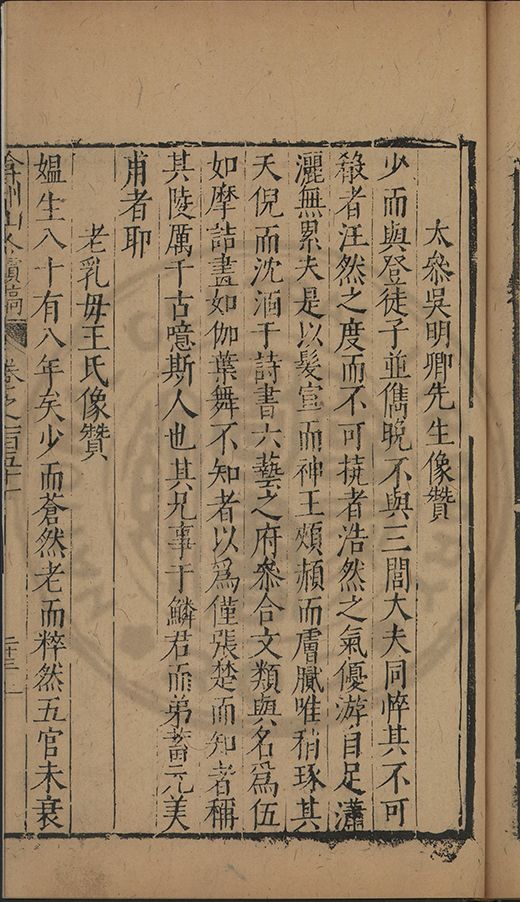 太叅吳明卿先生像贊
少而與登徒子並儁晚不與三閭大夫同悴其不可
殽者汪然之度而不可撓者浩然之氣優游自足瀟
灑無累夫是以髮宣而神王頰頳而膚膩唯稍琢其
天倪而沈湎于詩書六藝之府叅合文類與名爲伍
如摩詰畫如伽葉舞不知者以爲僅張楚而知者稱
其陵厲千古噫斯人也其兄事于鱗君而弟畜元美
甫者耶
老乳毋王氏像贊
媼生八十有八年矣少而蒼然老而粹然五官未衰
弇州山人續稿 卷之一百五十 二十三